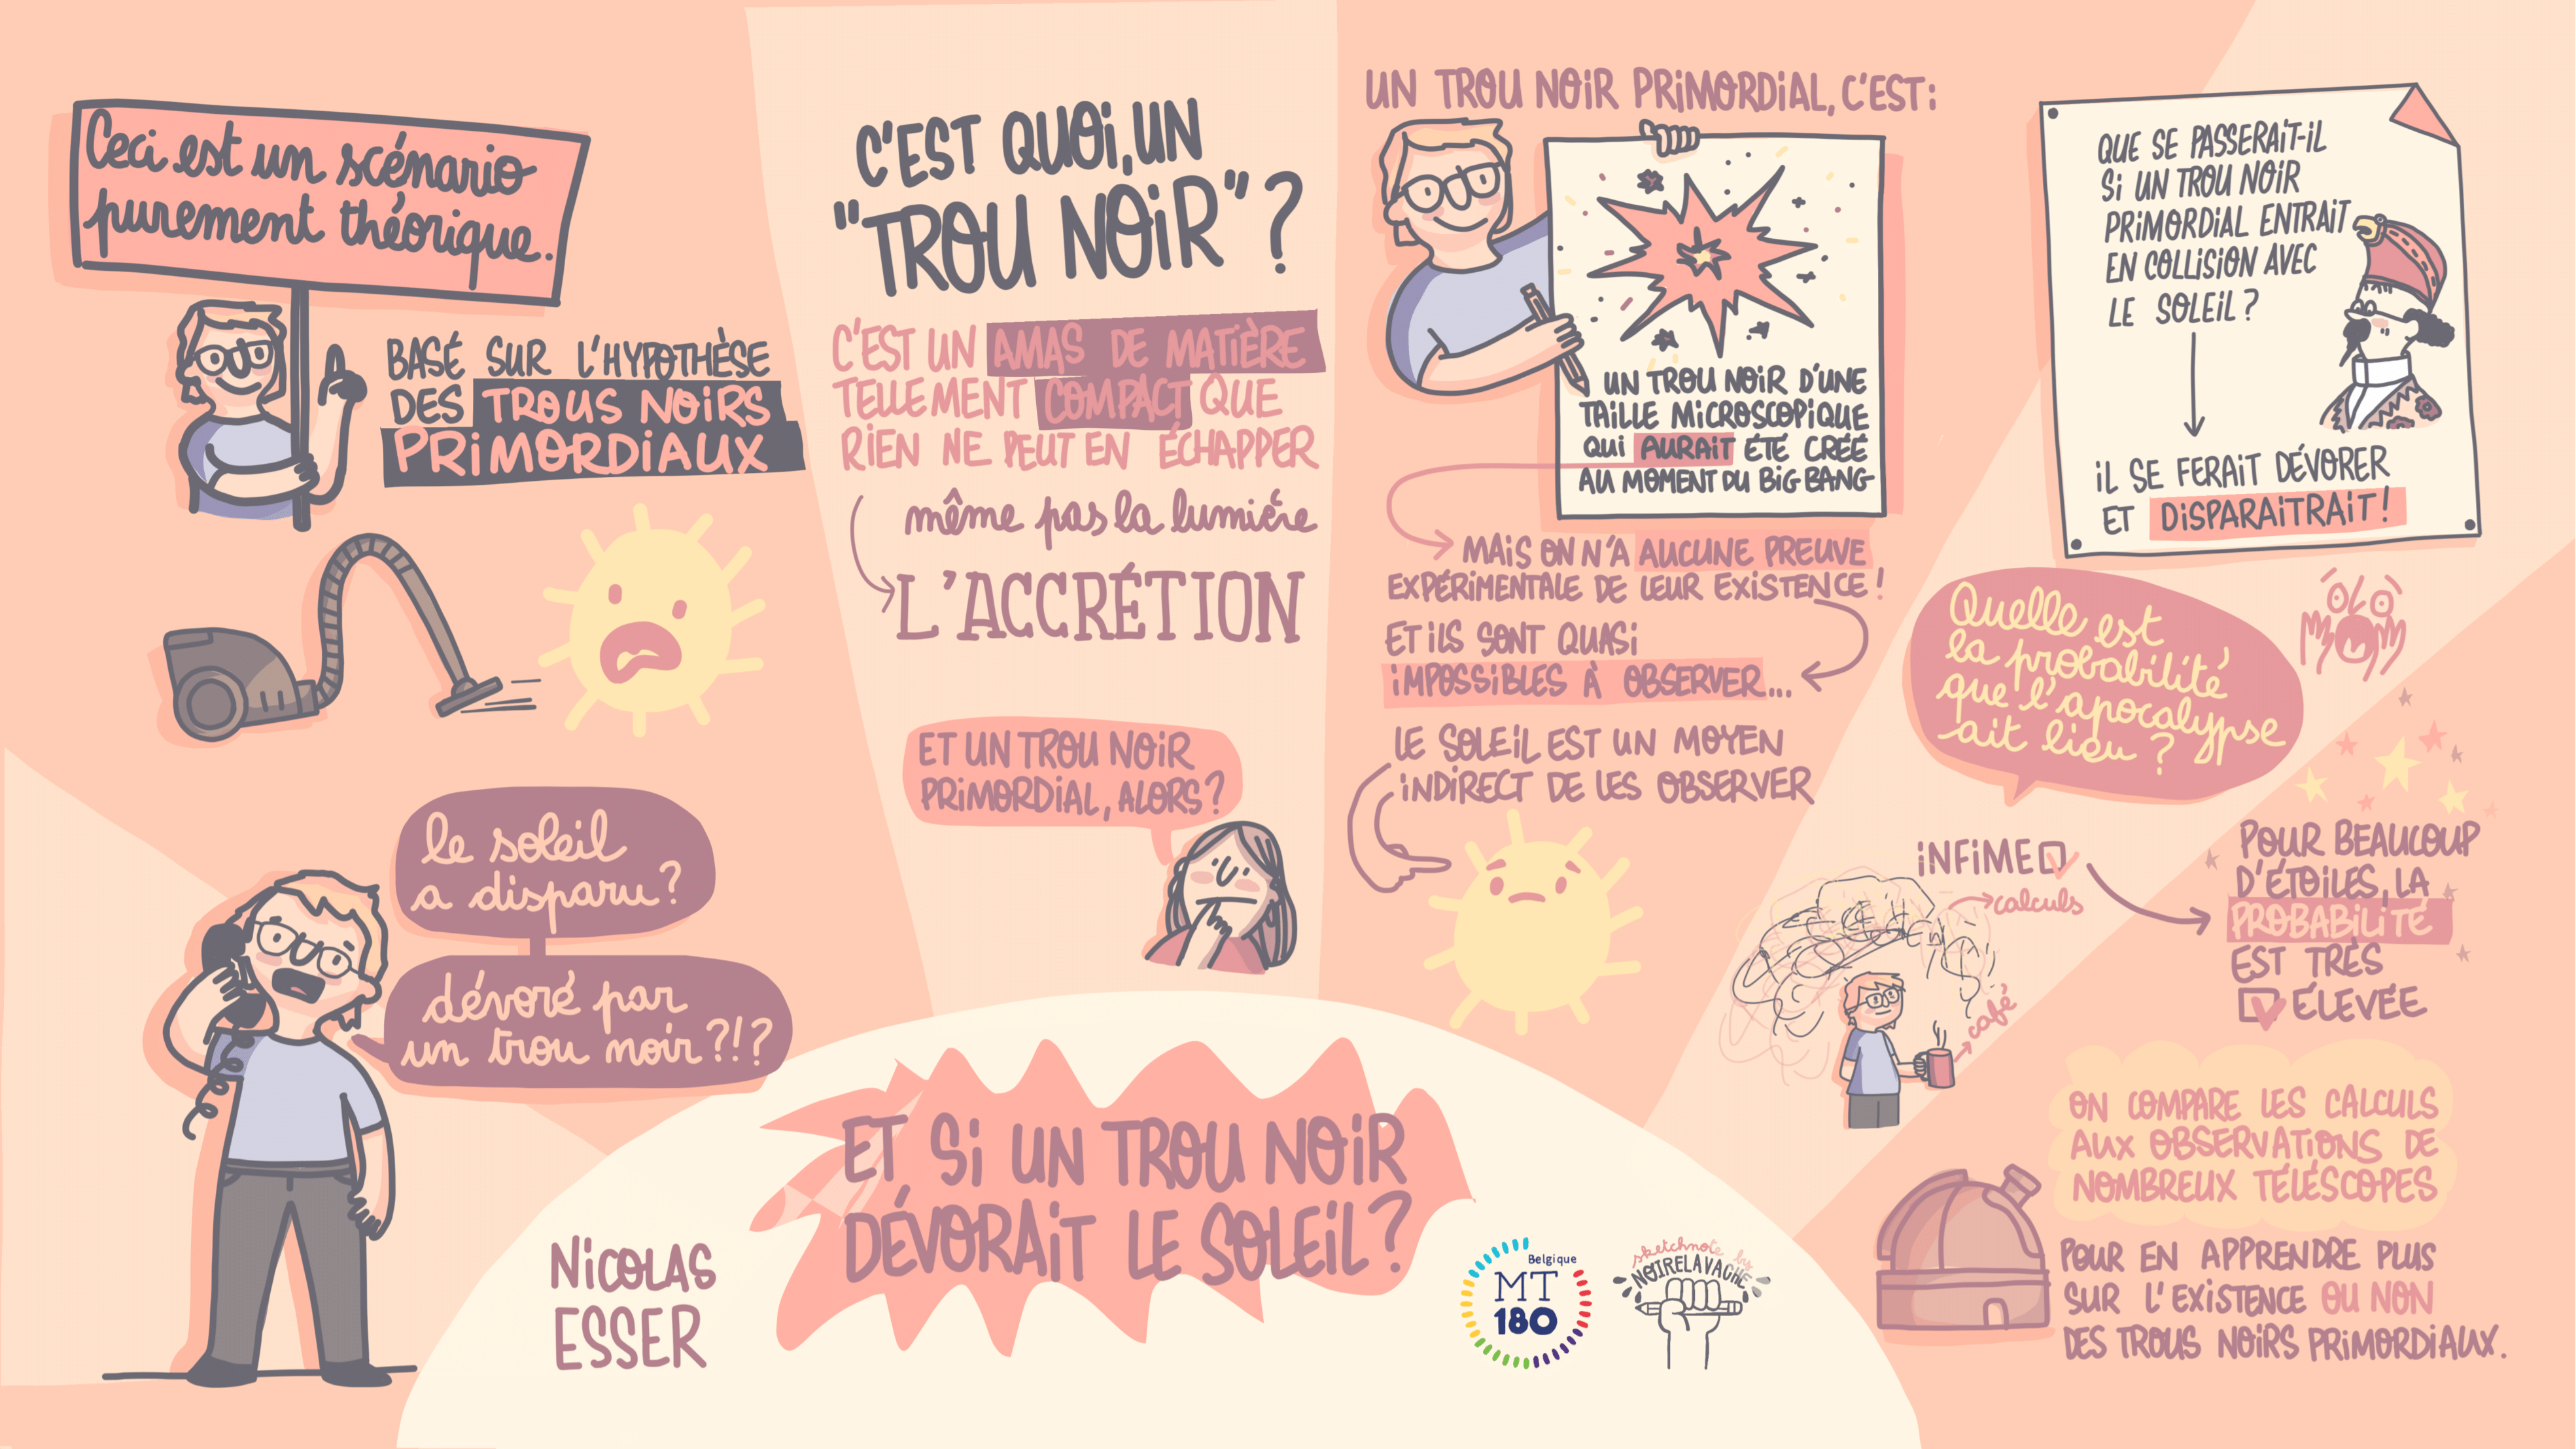 Ceci est un scénario
purement théorique.
BASÉ SUR L'HYPOTHÈSE
DES TROUS NOIRS
PRIMORDIAUX
le soleil
a disparu?
dévoré par
un trou noir?!?
C'EST QUOI, UN
"TROU NOIR"?
C'EST UN AMAS DE MATIÈRE
TELLEMENT COMPACT QUE
RIEN NE PEUT EN ÉCHAPPER
même pas la lumière
L'ACCRÉTION
ET UN TROU NOIR
PRIMORDIAL, ALORS?
UN TROU NOIR PRIMORDIAL, C'EST:
UN TROU NOIR D'UNE
TAILLE MICROSCOPIQUE
QUI AURAIT ÉTÉ CRÉÉ
AU MOMENT DU BIG BANG
MAIS ON N'A AUCUNE PREUVE
EXPÉRIMENTALE DE LEUR EXISTENCE!
ET ILS SONT QUASI
IMPOSSIBLES À OBSERVER...
LE SOLEIL EST UN MOYEN
INDIRECT DE LES OBSERVER
QUE SE PASSERAIT-IL
SI UN TROU NOIR
PRIMORDIAL ENTRAIT
EN COLLISION AVEC
LE SOLEIL?
IL SE FERAIT DÉVORER
ET DISPARAITRAIT!
Quelle est
la probabilité
que l'apocalypse
ait lieu?
INFIME
calculs
café
POUR BEAUCOUP
D'ÉTOILES, LA
PROBABILITÉ
EST TRÈS
ÉLEVÉE
ON COMPARE LES CALCULS
AUX OBSERVATIONS DE
NOMBREUX TÉLÉSCOPES
POUR EN APPRENDRE PLUS
SUR L'EXISTENCE OU NON
DES TROUS NOIRS PRIMORDIAUX.
ET SI UN TROU NOIR
DÉVORAIT LE SOLEIL?
NICOLAS
ESSER
Belgique
MT
180
sketchnote by
NOIRELAVACHE